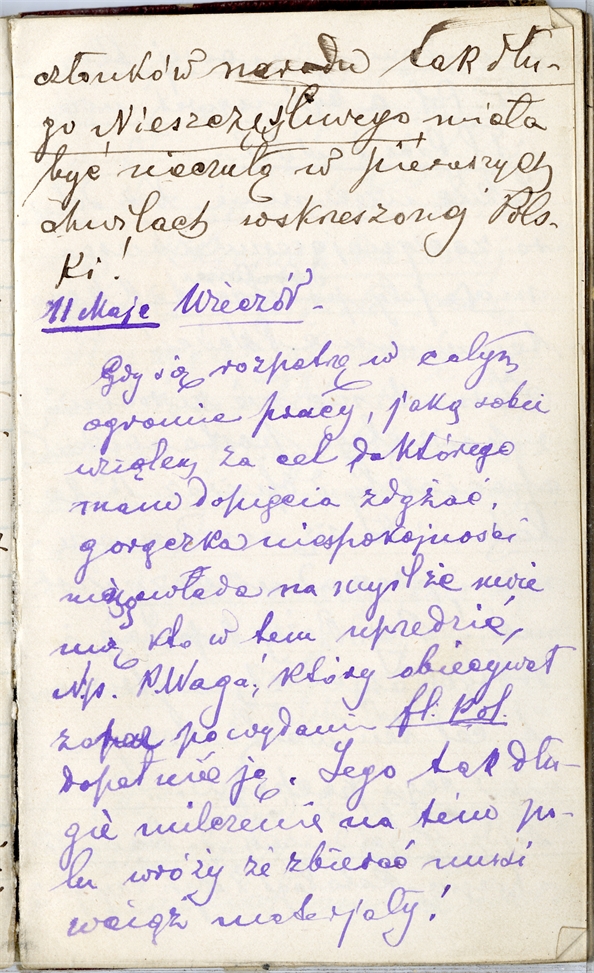 członków narodu tak dłu-
go Nieszczęśliwego miała
być nieczułą w piérwszych
chwilach wskreszonej Pols-
ki!
11 Maje Wieczór.
Gdy się rozpatrzę w całym
ogromie pracy, jaką sobie
wziąłem za cel do którego
mam dopięcia zdążać,
gorączka niespokojności
mną włada na myśl że mnie
może kto w tem uprzedzić,
Np. P. Waga, który obiecywał
zaraz po wydaniu fl. Pol.
dopełnić ją. Jego tak dłu-
gie milczenie na tém po-
lu wróży że zbierać musi
wciąż materjały!